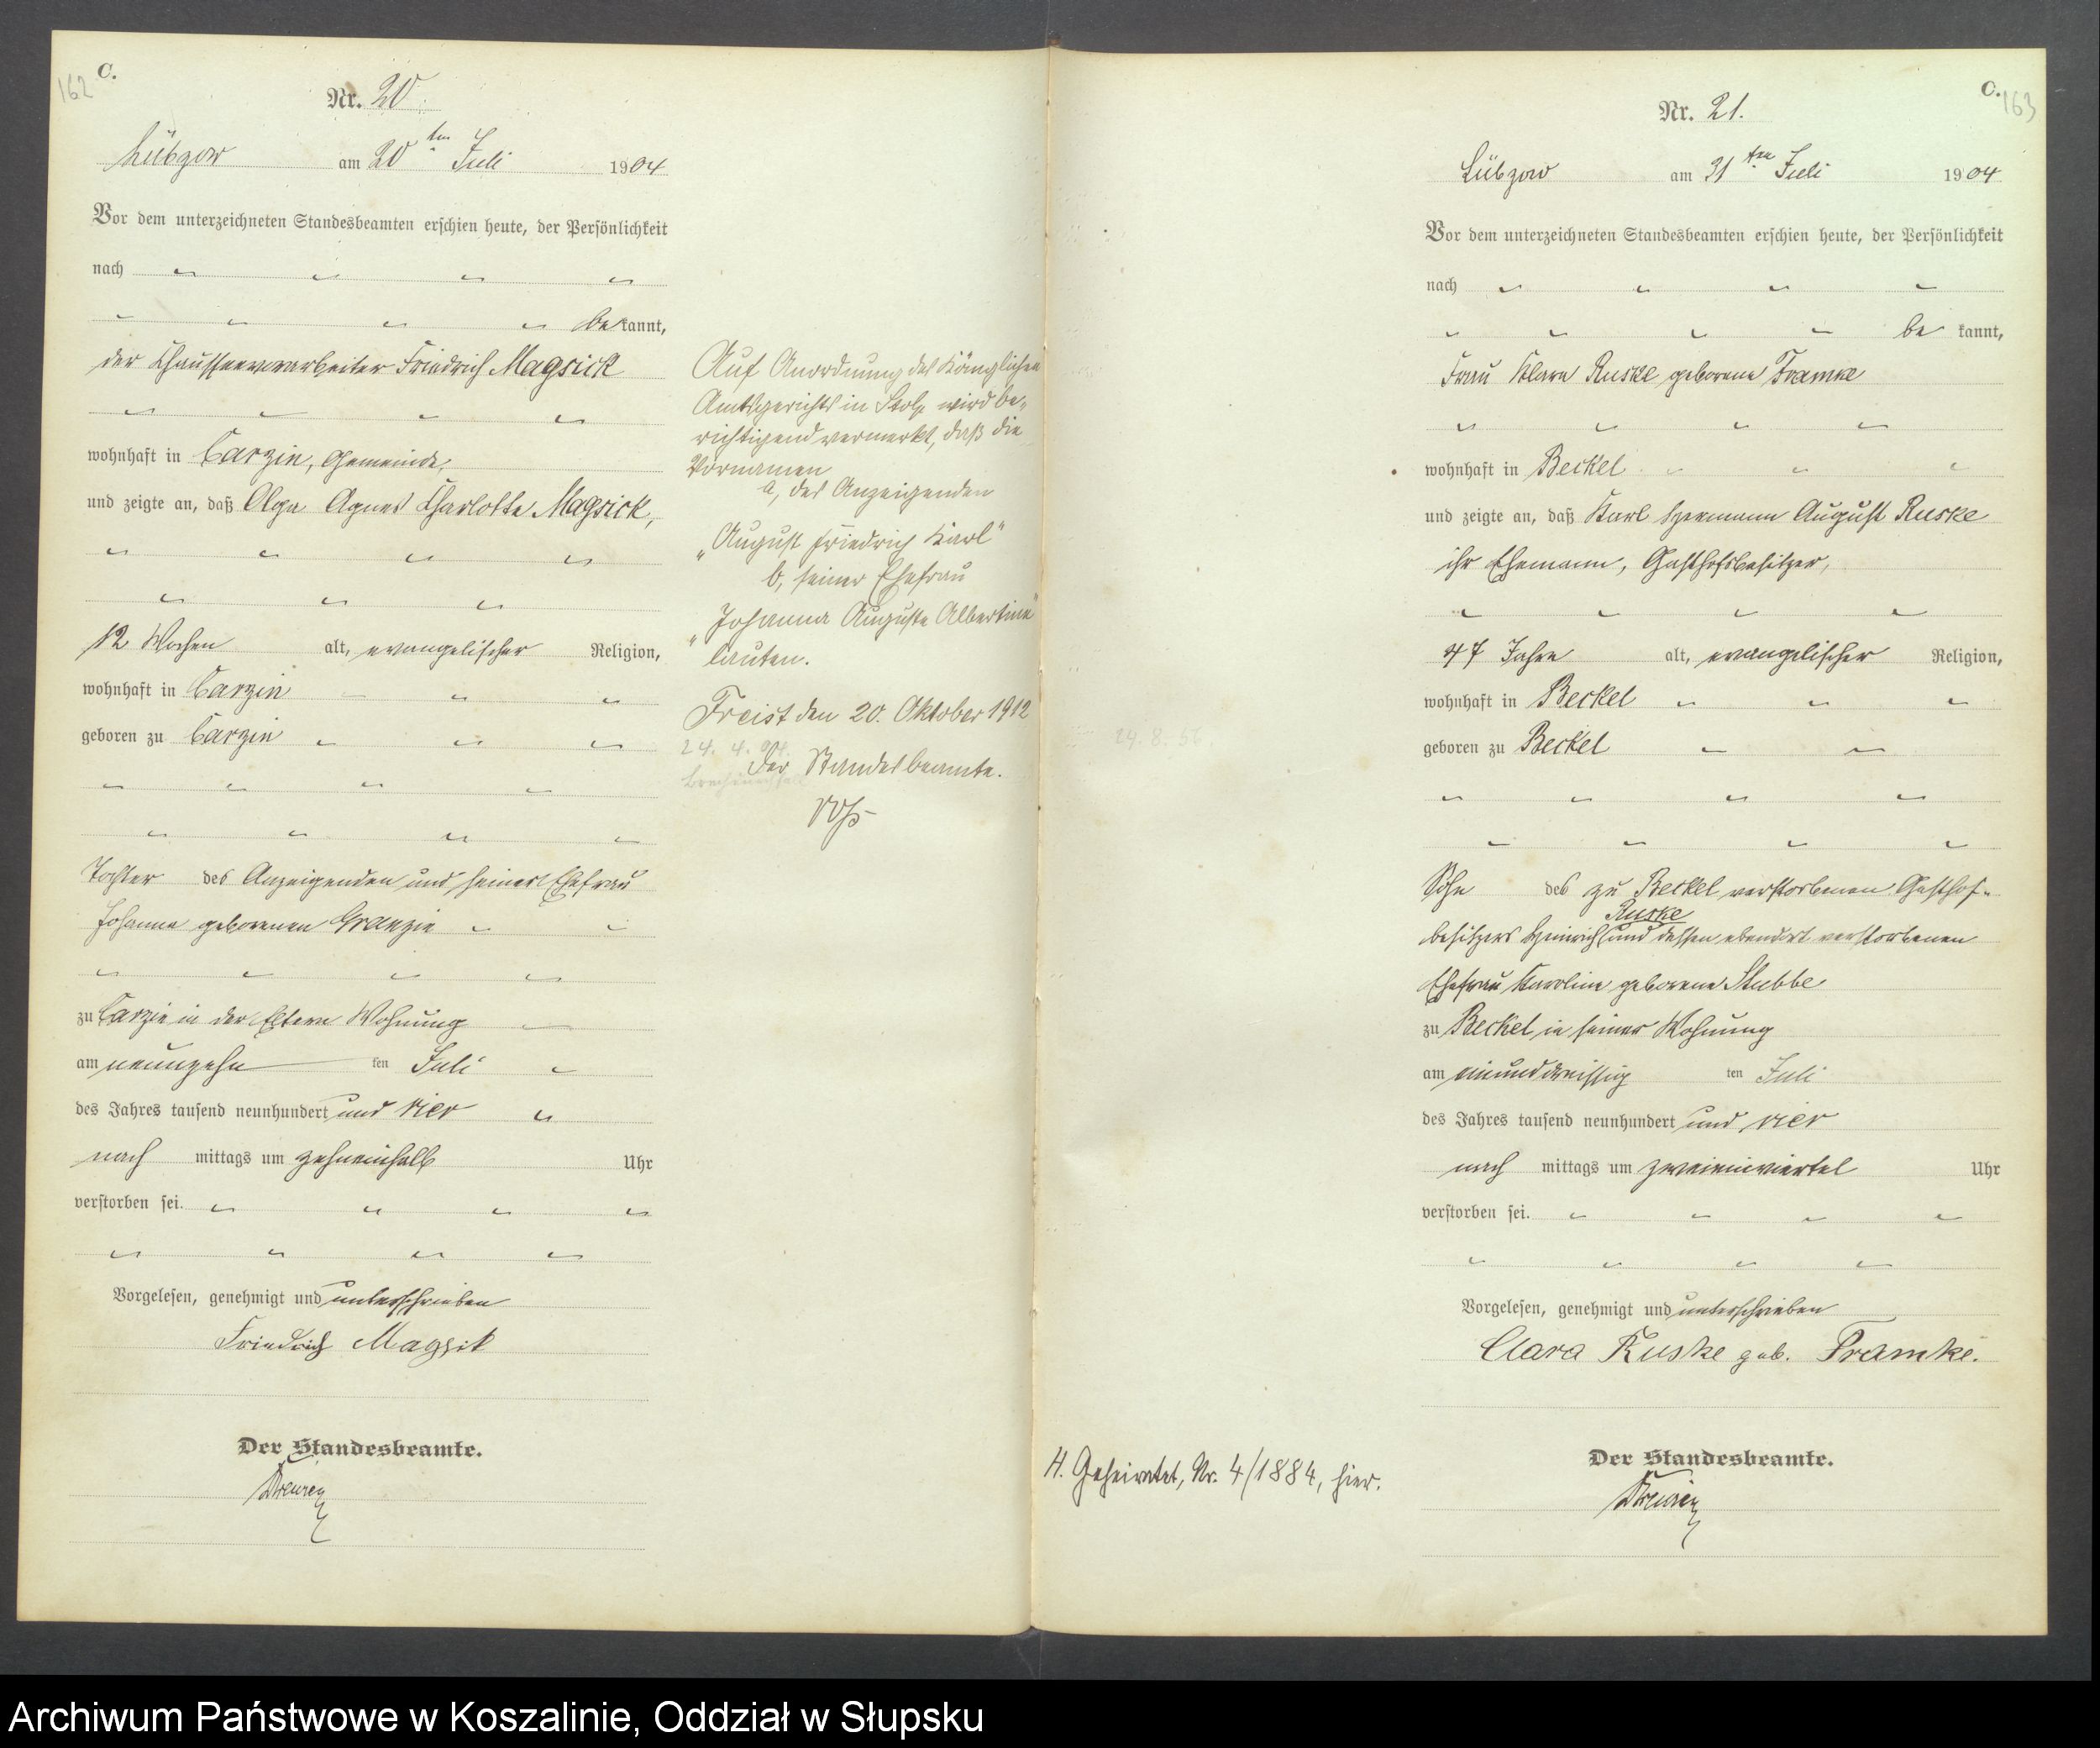 162
C.
Nr. 20.
Lübzow am 20ten Juli 1904
Vor dem unterzeichneten Standesbeamten erschien heute, der Persönlichkeit
nach
bekannt,
der Chausseevorarbeiter Friedrich Magsick
wohnhaft in Carzin, Gemeinde,
und zeigte an, daß Olga Agnes Charlotte Magsick,
12 Wochen alt, evangelischer Religion,
wohnhaft in Carzin
geboren zu Carzin
Tochter des Anzeigenden und seiner Ehefrau
Johanna geborenen Granzin
zu Carzin in der Eltern Wohnung
am neunzehn ten Juli
des Jahres tausend neunhundert und vier
nach mittags um zehneinhalb Uhr
verstorben sei.
Vorgelesen, genehmigt und unterschrieben
Friedrich Magsik
Der Standesbeamte.
Auf Anordnung des Königlichen
Amtsgerichts in Stolp wird be-
richtigend vermerkt, daß die
Vornamen
a, des Anzeigenden
„August Friedrich Karl“
b, seiner Ehefrau
„Johanna Auguste Albertine“
lauten.
Freist den 20. Oktober 1912
24. 4. 04.
Der Standesbeamte.
163
C.
Nr. 21.
Lübzow am 31ten Juli 1904
Vor dem unterzeichneten Standesbeamten erschien heute, der Persönlichkeit
nach
be kannt,
Frau Klara Ruske geborene Framke
wohnhaft in Beckel
und zeigte an, daß Karl Hermann August Ruske
ihr Ehemann, Gasthofsbesitzer,
47 Jahre alt, evangelischer Religion,
wohnhaft in Beckel
geboren zu Beckel
24. 8. 56
Sohn des zu Beckel verstorbenen Gasthof-
besitzers Heinrich Ruske und dessen ebendort verstorbenen
Ehefrau Karoline geborene Stubbe
zu Beckel in seiner Wohnung
am einunddreissig ten Juli
des Jahres tausend neunhundert und vier
nach mittags um zweieinviertel Uhr
verstorben sei.
Vorgelesen, genehmigt und unterschrieben
Clara Ruske geb. Framke.
Der Standesbeamte.
H. Geheiratet, Nr. 4/1884, hier.
Archiwum Państwowe w Koszalinie, Oddział w Słupsku